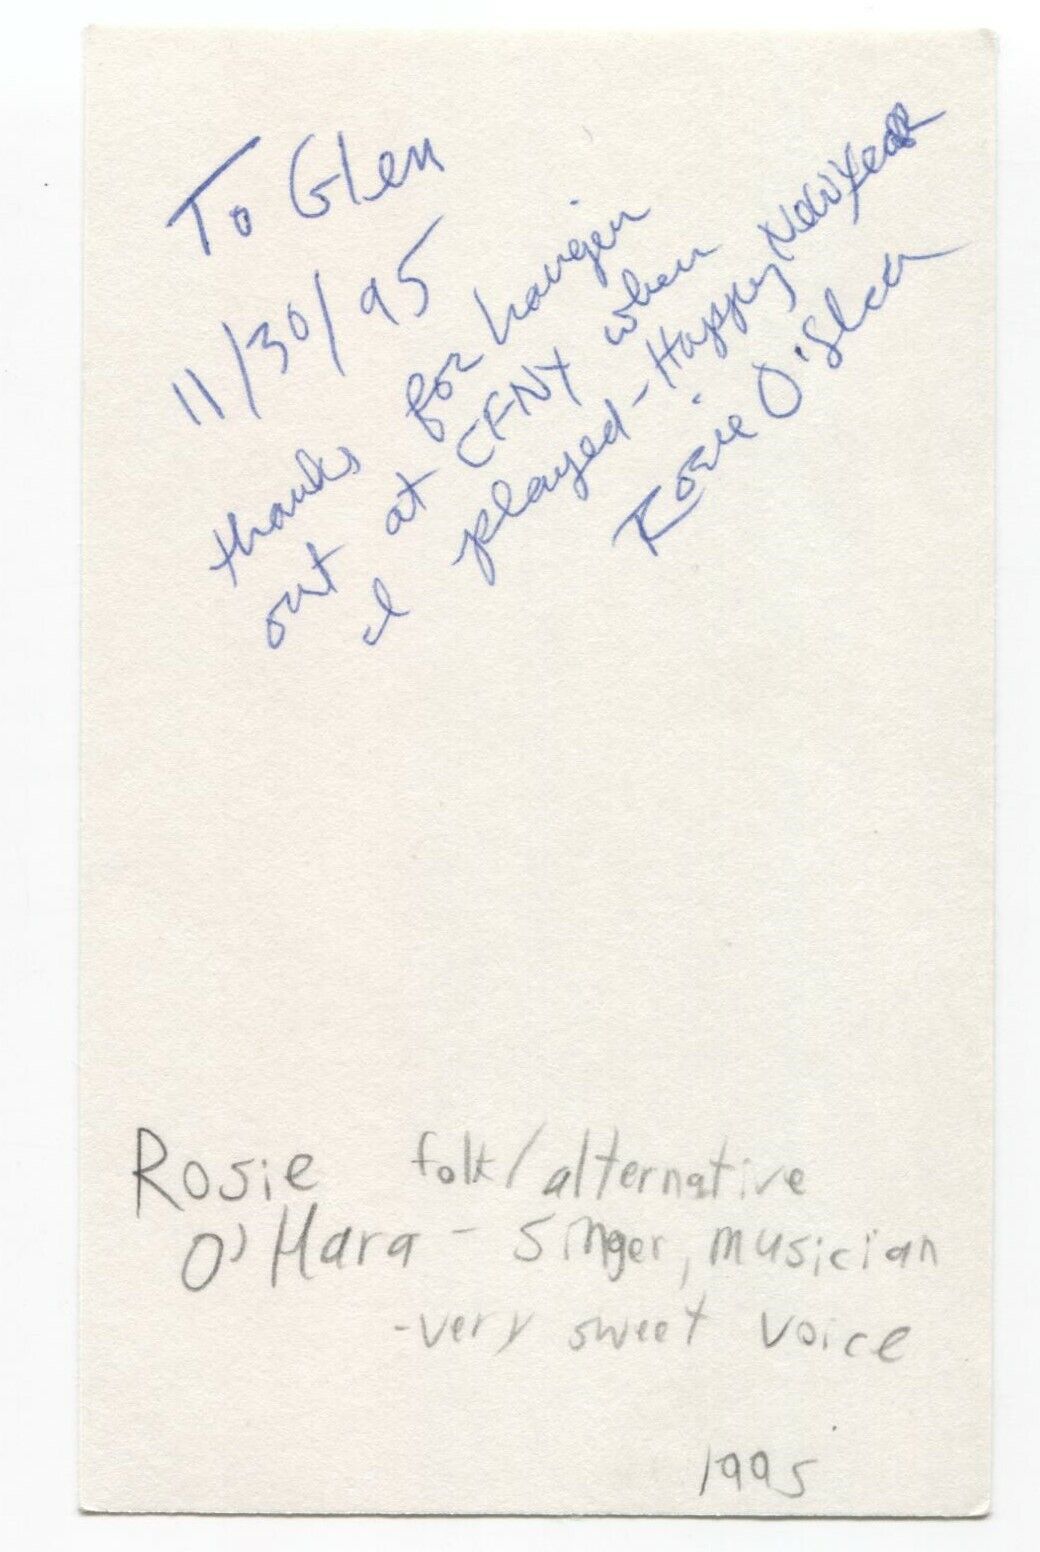 To Glen
11/30/95
thanks for hangin
out at CFNY when
I played - Happy New Year
Rosie O'
Rosie folk/alternative
O'Hara - Singer, musician
- very sweet voice
1995